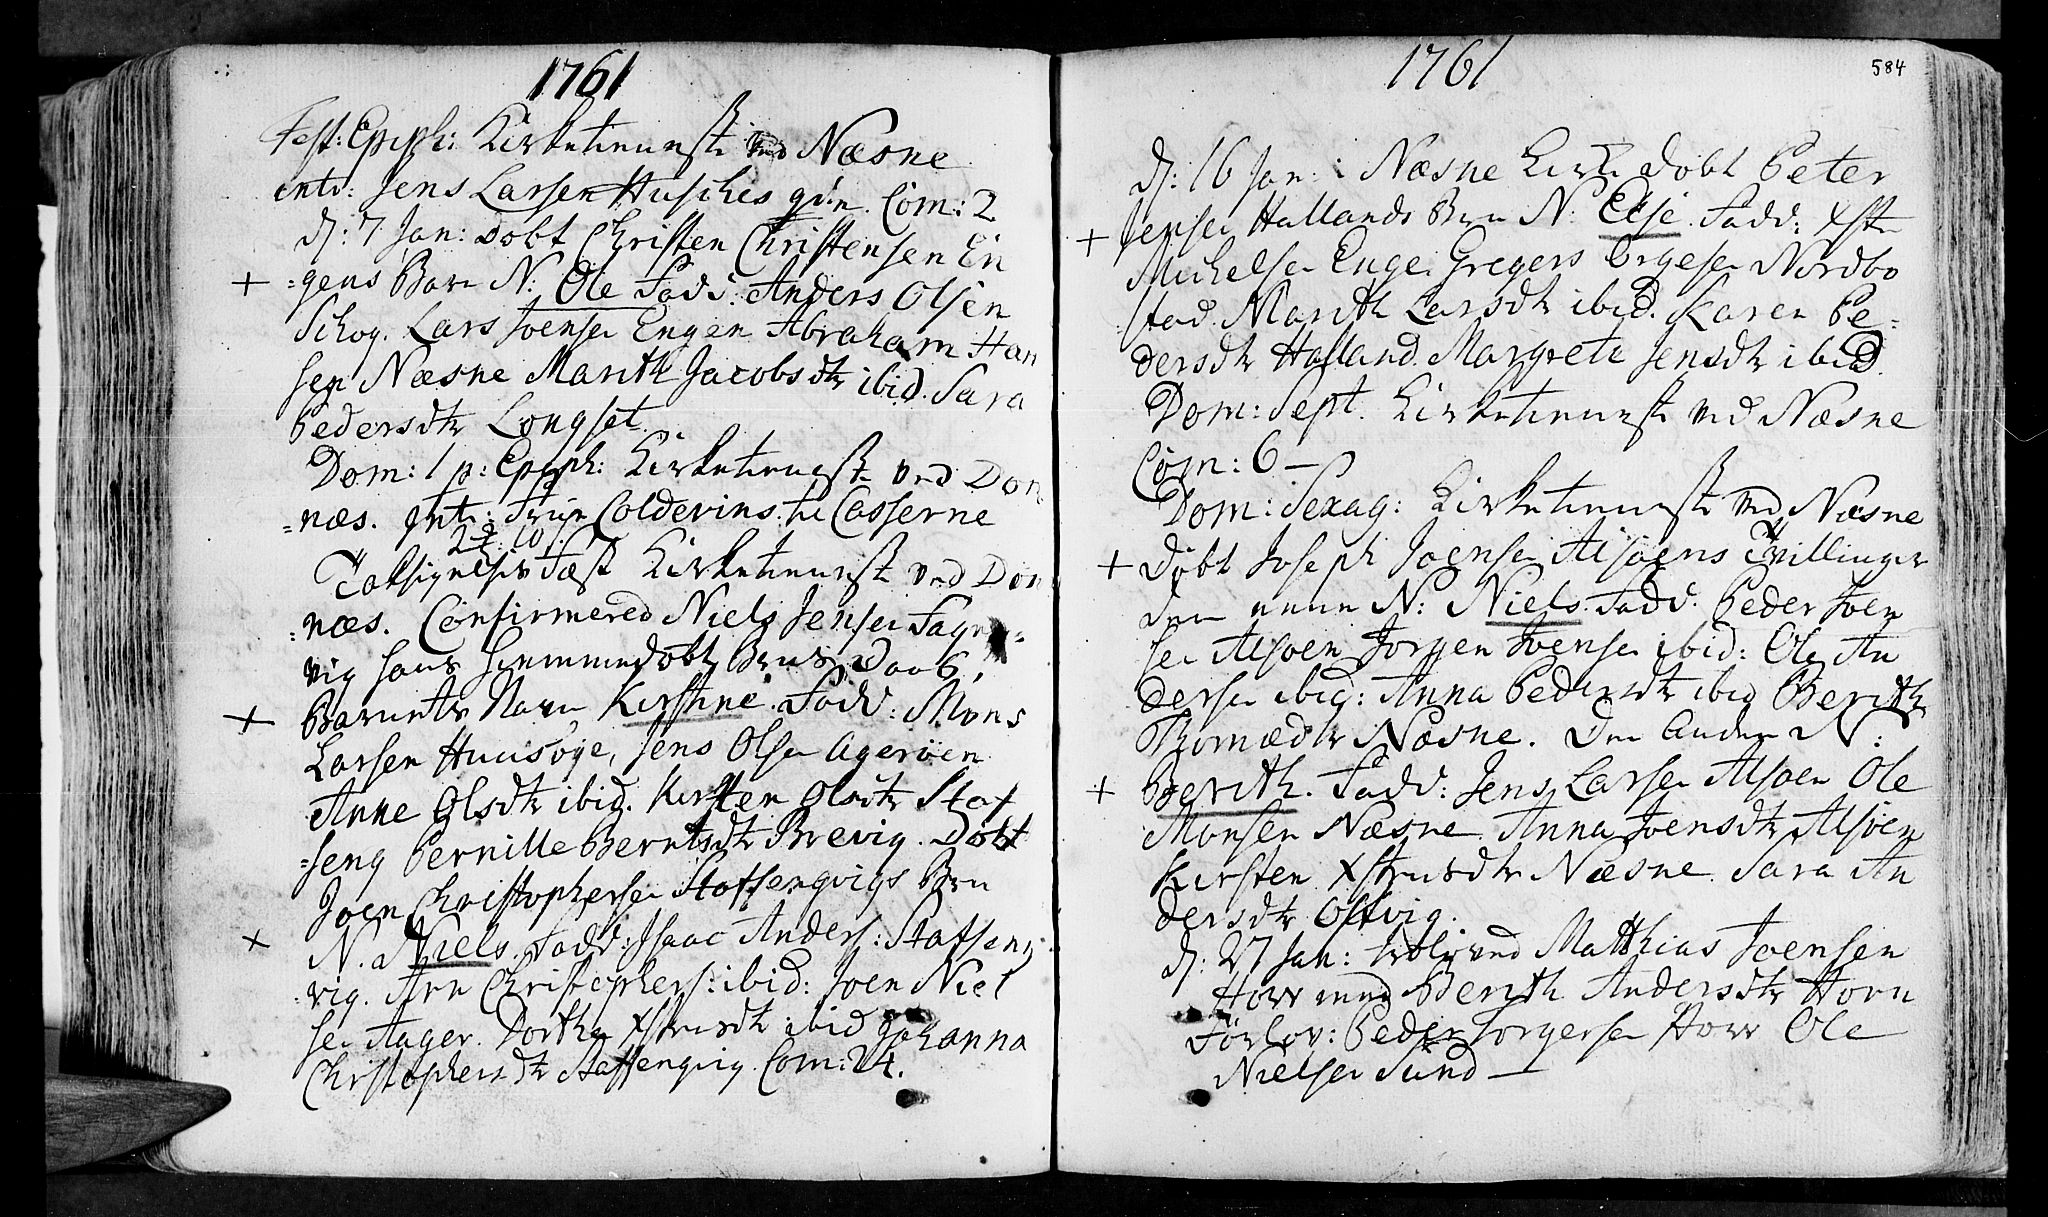 1761
Fest: Epiph: Kirketieniste ved Næsne
intr: Jens Larsen Husøies qvin. Com: 2
d: 7 Jan: døbt Christen Christensen En
+ =gens Barn N: Ole Fadd: Anders Olsen
Schog. Lars Joensen Engen Abraham Han
sen Næsne Marith Jacobsdtr ibid. Sara
Pedersdtr Longset.
Dom: 1 p: Epiph: Kirketieniste ved Døn
=næs. Int: Colderins
Taksigelses Fæst Kirketieniste ved Døn
=næs. Confirmered Niels Jensen Fagre=
vig hans hiemmedøbte Barns Daab,
+ Barnets Navn Kirstine. Fadd: Mons
Larsen Huusøye, Jens Olsen Agerøen
Anne Olsdtr ibid. Kirsten Olsdtr Staf
=seng Pernille Berntsdtr Brevig. Døbt
Joen Christophersen Staffengvigs Barn
+ N. Niels. Fadd: Isaac Anders: Stafseng
=vig. Arn Christophers: ibid: Joen Niel
sen Aager. Dorthe Xstensdtr ibid Johanna
Christophersdtr Staffengvig. Com: 24.
1761
584
d: 16 Jan: i Næsne Kirke døbt Peter
+ Jensen Hallands Barn N: Else. Fadd: Xsten
Michelsen Enge. Gregers Ørgesen Nordbo
=stad. Marith Larsdtr ibid. Karen Pe=
dersdtr Halland. Margrete Jensdtr ibid.
Dom: Sept. Kirketieniste ved Næsne
Com: 6 —
Dom: Sexag: Kirketieniste ved Næsne
+ døbt Joseph Joensen Alsøens Tvillinger
den eene N: Niels. Fadd: Peder Joen
sen Alsøen Jørgen Joensen ibid: Ole An
dersen ibid: Anna Pedersdtr ibid Berith
Thomædtr Næsne. Den Anden N:
+ Berith. Fadd: Jens Larsen Alsøen Ole
Monsen Næsne. Anna Joensdtr Alsøen
Kirsten Xstensdtr Næsne. Sara An
dersdtr Oftvig.
d: 27 Jan: troloved Matthias Joensen
Horn med Berith Andersdtr Horn
Forlov: Peder Jorgersen Horn Ole
Nielsen Sund —